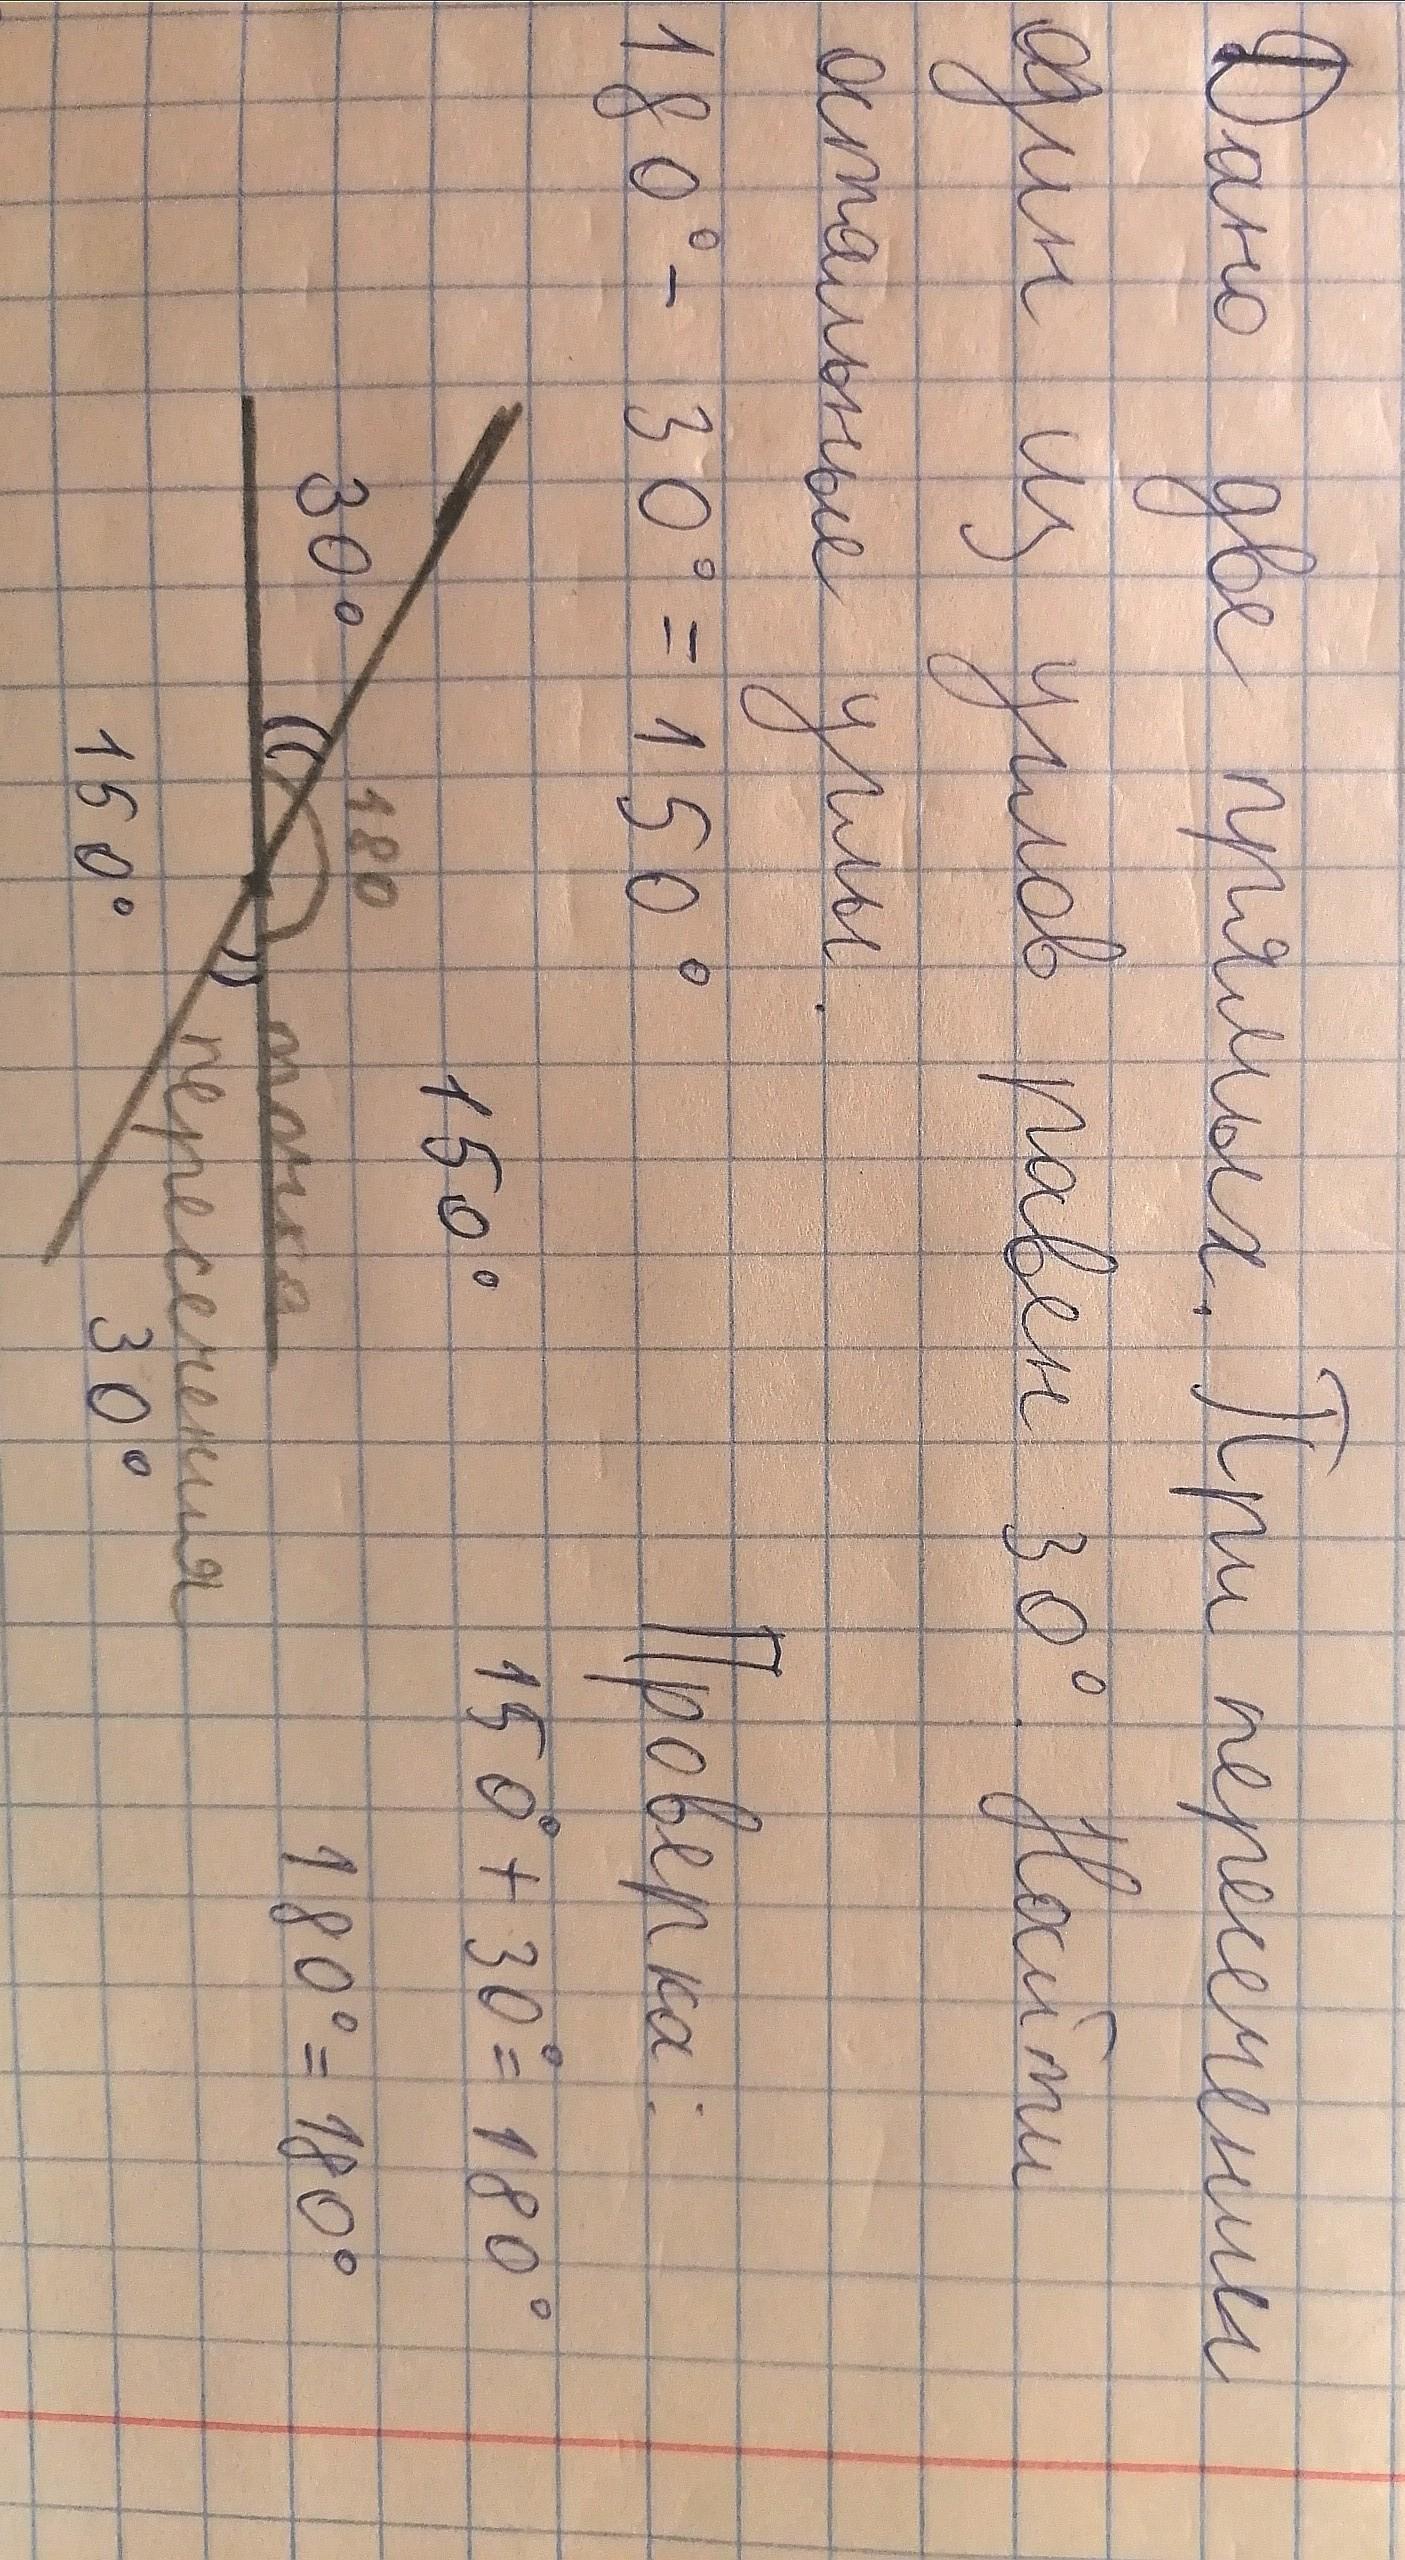 Дано две прямых. При пересечении
один из углов равен 30°. Найти
остальные углы.
180° - 30° = 150°
Проверка:
150° + 30° = 180°
180° = 180°
150°
30°
180
точка
пересечения
150°
30°